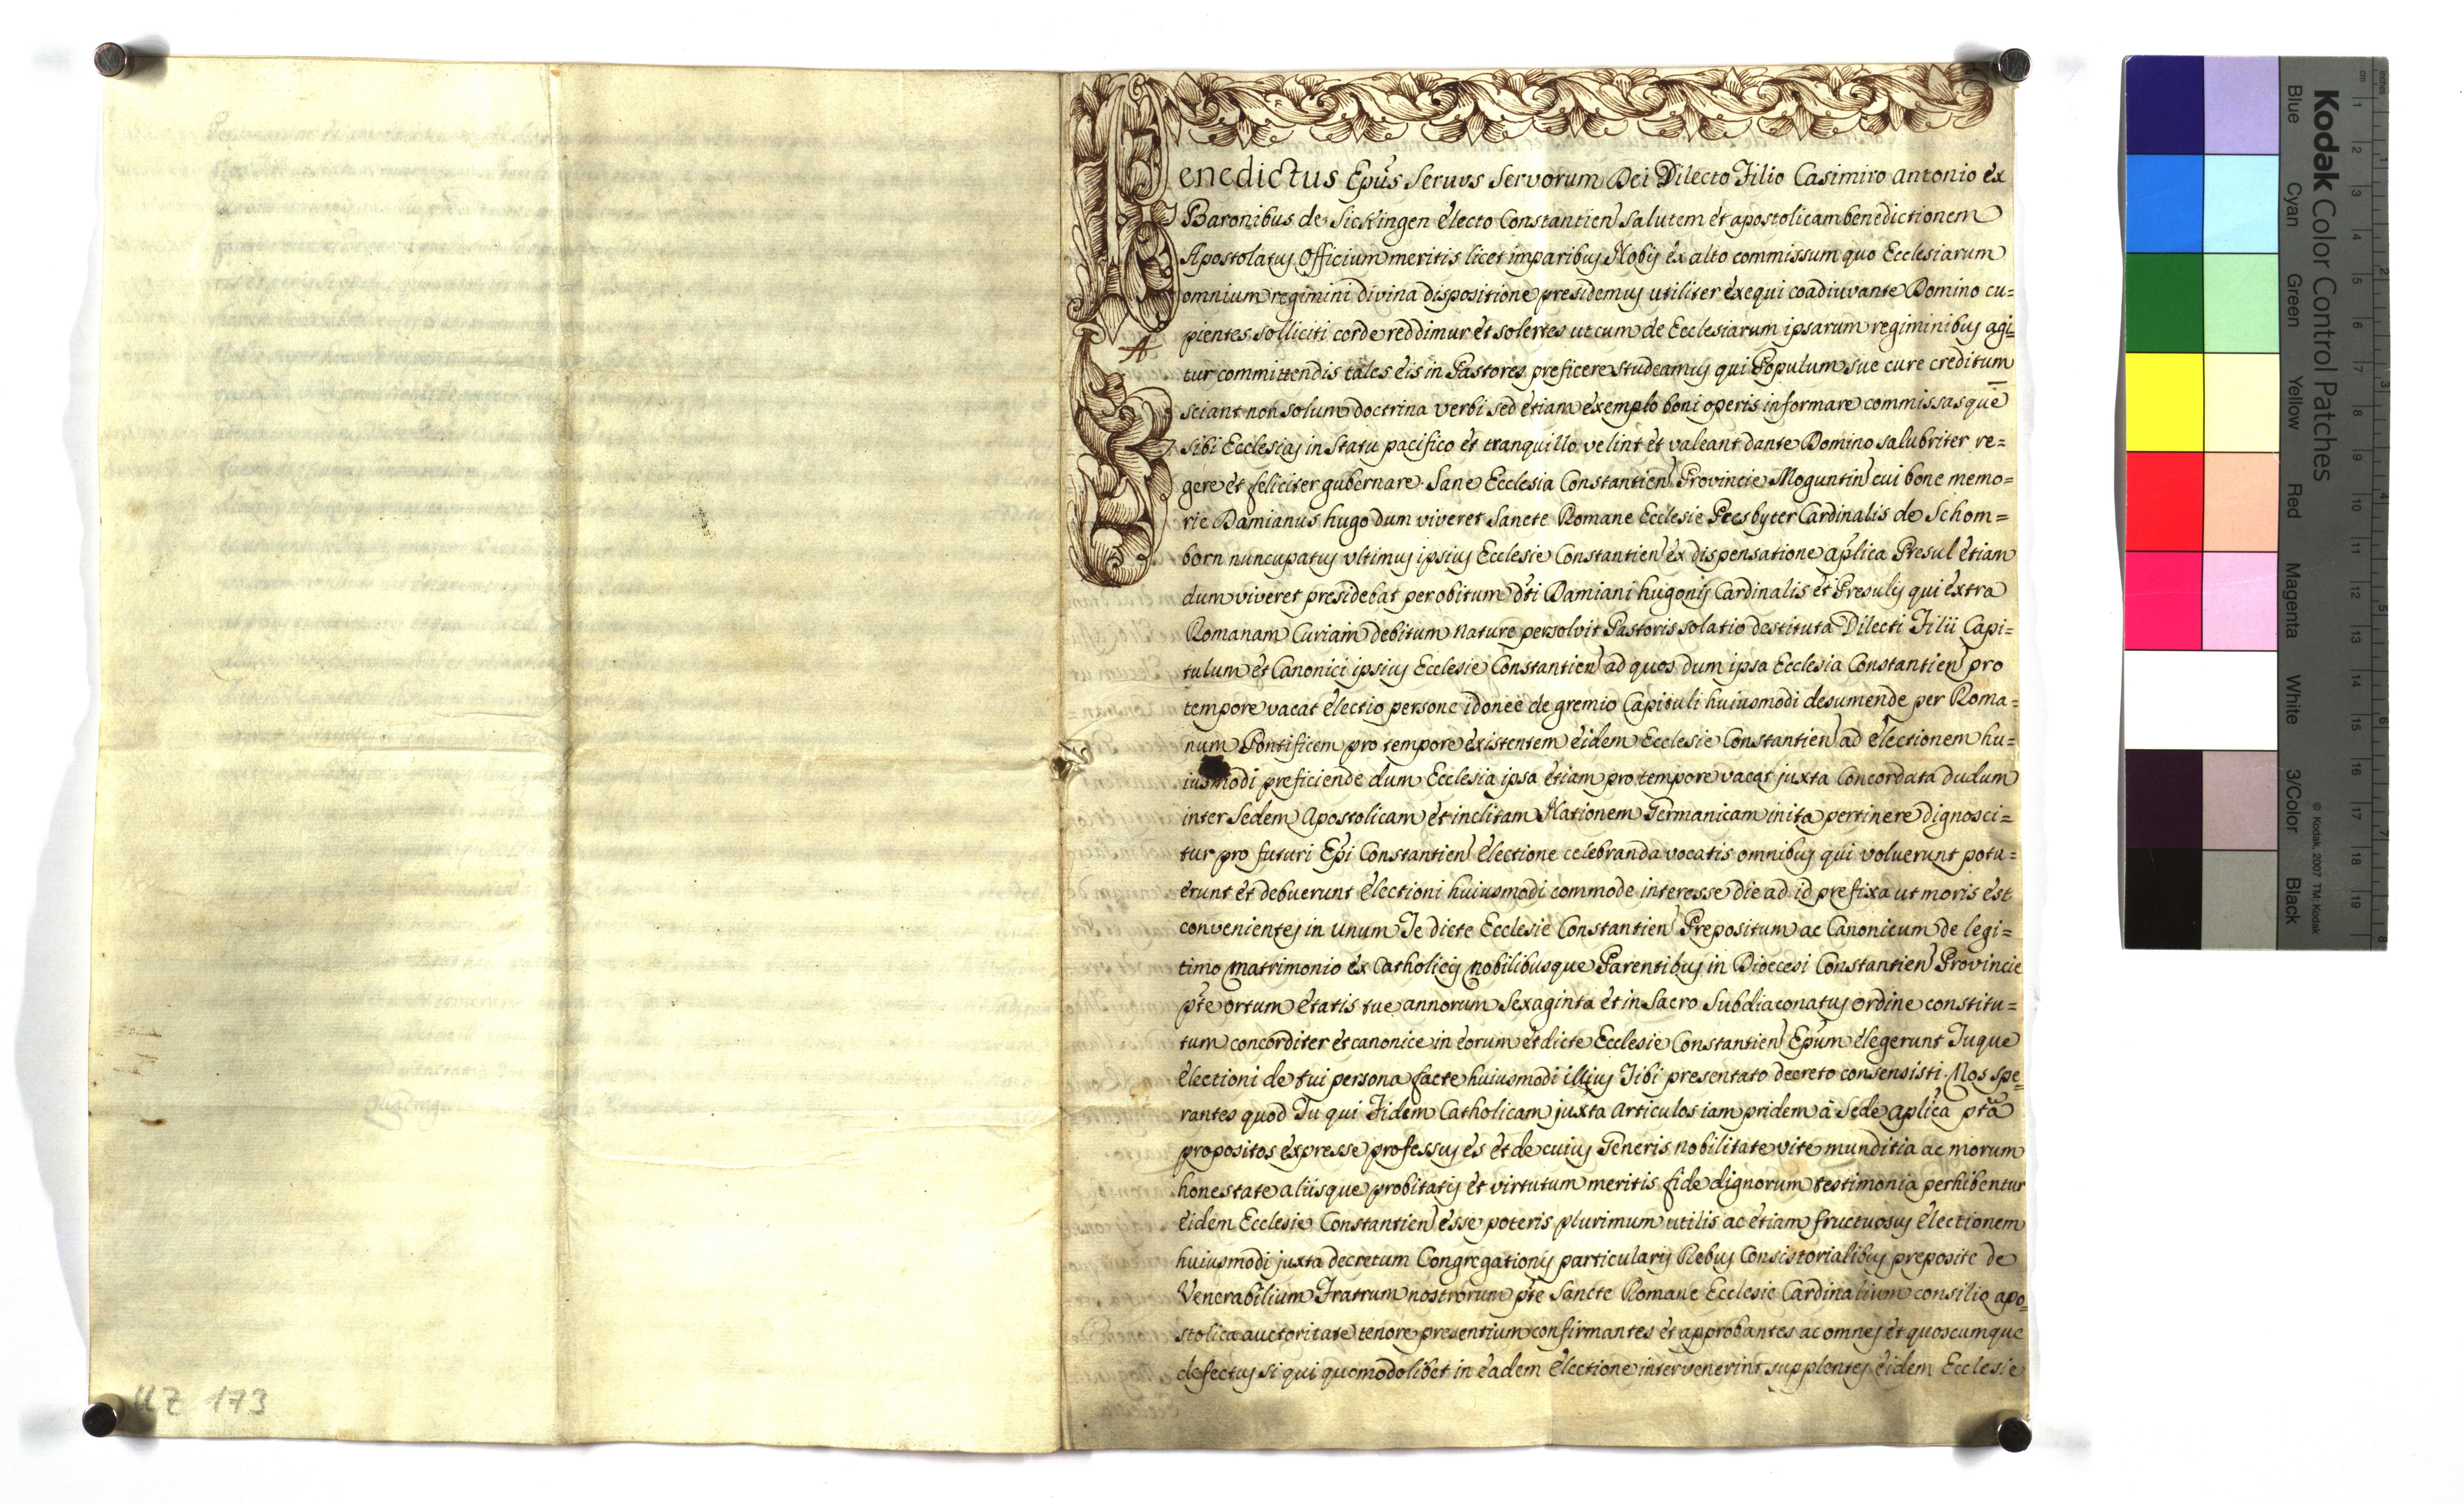 Benedictus Epús Servus Servorum Dei Dilecto Filio Casimiro Antonio ex
Baronibus de Sickingen electo Constantien Salutem et apostolicam benedictionem
Apostolatus Officium meritis licet imparibus Nobis ex alto commissum quo Ecclesiarum
omnium regimini divina dispositione presidemus utiliter exequi coadiuvante Domino cu=
pientes solliciti corde reddimur et solertes ut cum de Ecclesiarum ipsarum regiminibus agi=
tur committendis tales eis in Pastores preficere studeamus qui Populum sue cure creditum
sciant non solum doctrina verbi sed etiam exemplo boni operis informare commissasque
sibi Ecclesias in statu pacifico et tranquillo velint et valeant dante Domino salubriter re=
gere et feliciter gubernare. Sane Ecclesia Constantien Provincie Moguntin cui bone memo=
rie Damianus hugo dum viveret Sancte Romane Ecclesie Presbyter Cardinalis de Schom=
born nuncupatus ultimus ipsius Ecclesie Constantien ex dispensatione aplica Presul etiam
dum viveret presidebat per obitum dti Damiani hugonis Cardinalis et Presulis qui extra
Romanam Curiam debitum nature persolvit Pastoris solatio destituta Dilecti Filii Capi=
tulum et Canonici ipsius Ecclesie Constantien ad quos dum ipsa Ecclesia Constantien pro
tempore vacat electio persone idonee de gremio Capituli huiusmodi desumende per Roma=
num Pontificem pro tempore existentem eidem Ecclesie Constantien ad electionem hu=
iusmodi preficiende dum Ecclesia ipsa etiam pro tempore vacat juxta Concordata dudum
inter Sedem Apostolicam et inclitam Nationem Germanicam inita pertinere dignosci=
tur pro futuri Epi Constantien electione celebranda vocatis omnibus qui voluerunt potu=
erunt et debuerunt electioni huiusmodi commode interesse die ad id prefixa ut moris est
convenientes in unum Te dicte Ecclesie Constantien Prepositum ac Canonicum de legi=
timo matrimonio ex Catholicis nobilibusque Parentibus in Diocesi Constantien Provincie
pte ortum etatis tue annorum Sexaginta et in Sacro Subdiaconatus ordine constitu=
tum concorditer et canonice in eorum et dicte Ecclesie Constantien Epum elegerunt Tuque
electioni de tui persona facte huiusmodi illius Tibi presentato decreto consensisti. Nos spe=
rantes quod Tu qui Fidem Catholicam juxta Articulos iam pridem à Sede aplica pta
propositos expresse professus es et de cuius Generis nobilitate vite munditia ac morum
honestate aliisque probitatis et virtutum meritis fide dignorum testimonia perhibentur
eidem Ecclesie Constantien esse poteris plurimum utilis ac etiam fructuosus electionem
huiusmodi juxta decretum Congregationis particularis Rebus Consistorialibus preposite de
Venerabilium Fratrum nostrorum pte Sancte Romane Ecclesie Cardinalium consilio apo=
stolica auctoritate tenore presentium confirmantes et approbantes ac omnes et quoscumque
defectus si qui quomodolibet in eadem electione intervenerint supplentes eidem Ecclesie
A
UZ 173
Kodak Color Control Patches
Blue Cyan Green Yellow Red Magenta White 3/Color Black
© Kodak, 2007 TM: Kodak